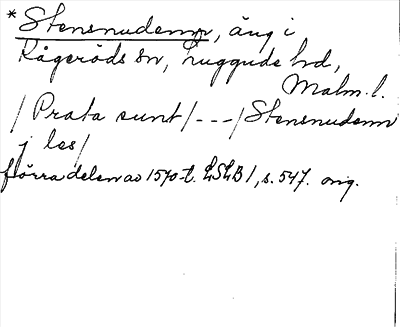 * Stensnudemn, äng i
Kågeröds sn, Luggude hd,
Malm. l.
/ Prata sunt / - - - / Stensnudemn
j les /
förra delen av 1570-t. LSLB 1, s. 547. orig.